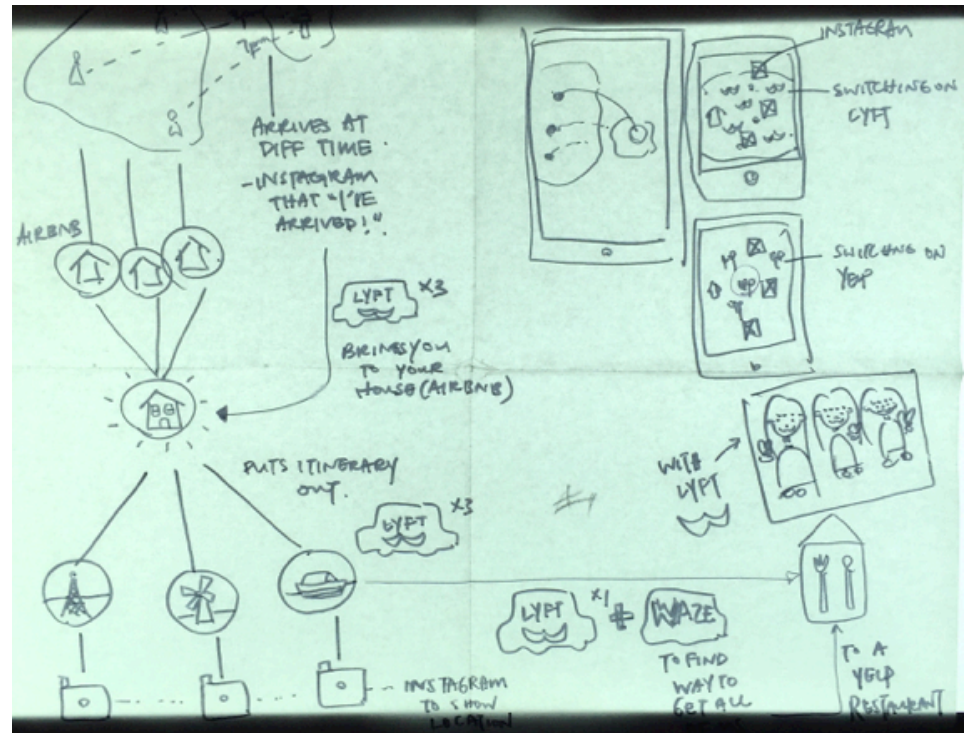 ARRIVES AT
DIFF TIME
- INSTAGRAM
THAT "I'VE
ARRIVED!"
AIRBNB
LYFT x3
BRINGS YOU
TO YOUR
HOUSE (AIRBNB)
PUTS ITINERARY
OUT.
LYFT x3
INSTAGRAM
TO SHOW
LOCATION
INSTAGRAM
SWITCHING ON
LYFT
SWITCHNG ON
YELP
WITH
LYFT
LYFT x1 + WAZE
TO FIND
WAY TO
GET ALL
TO A
YELP
RESTAURANT